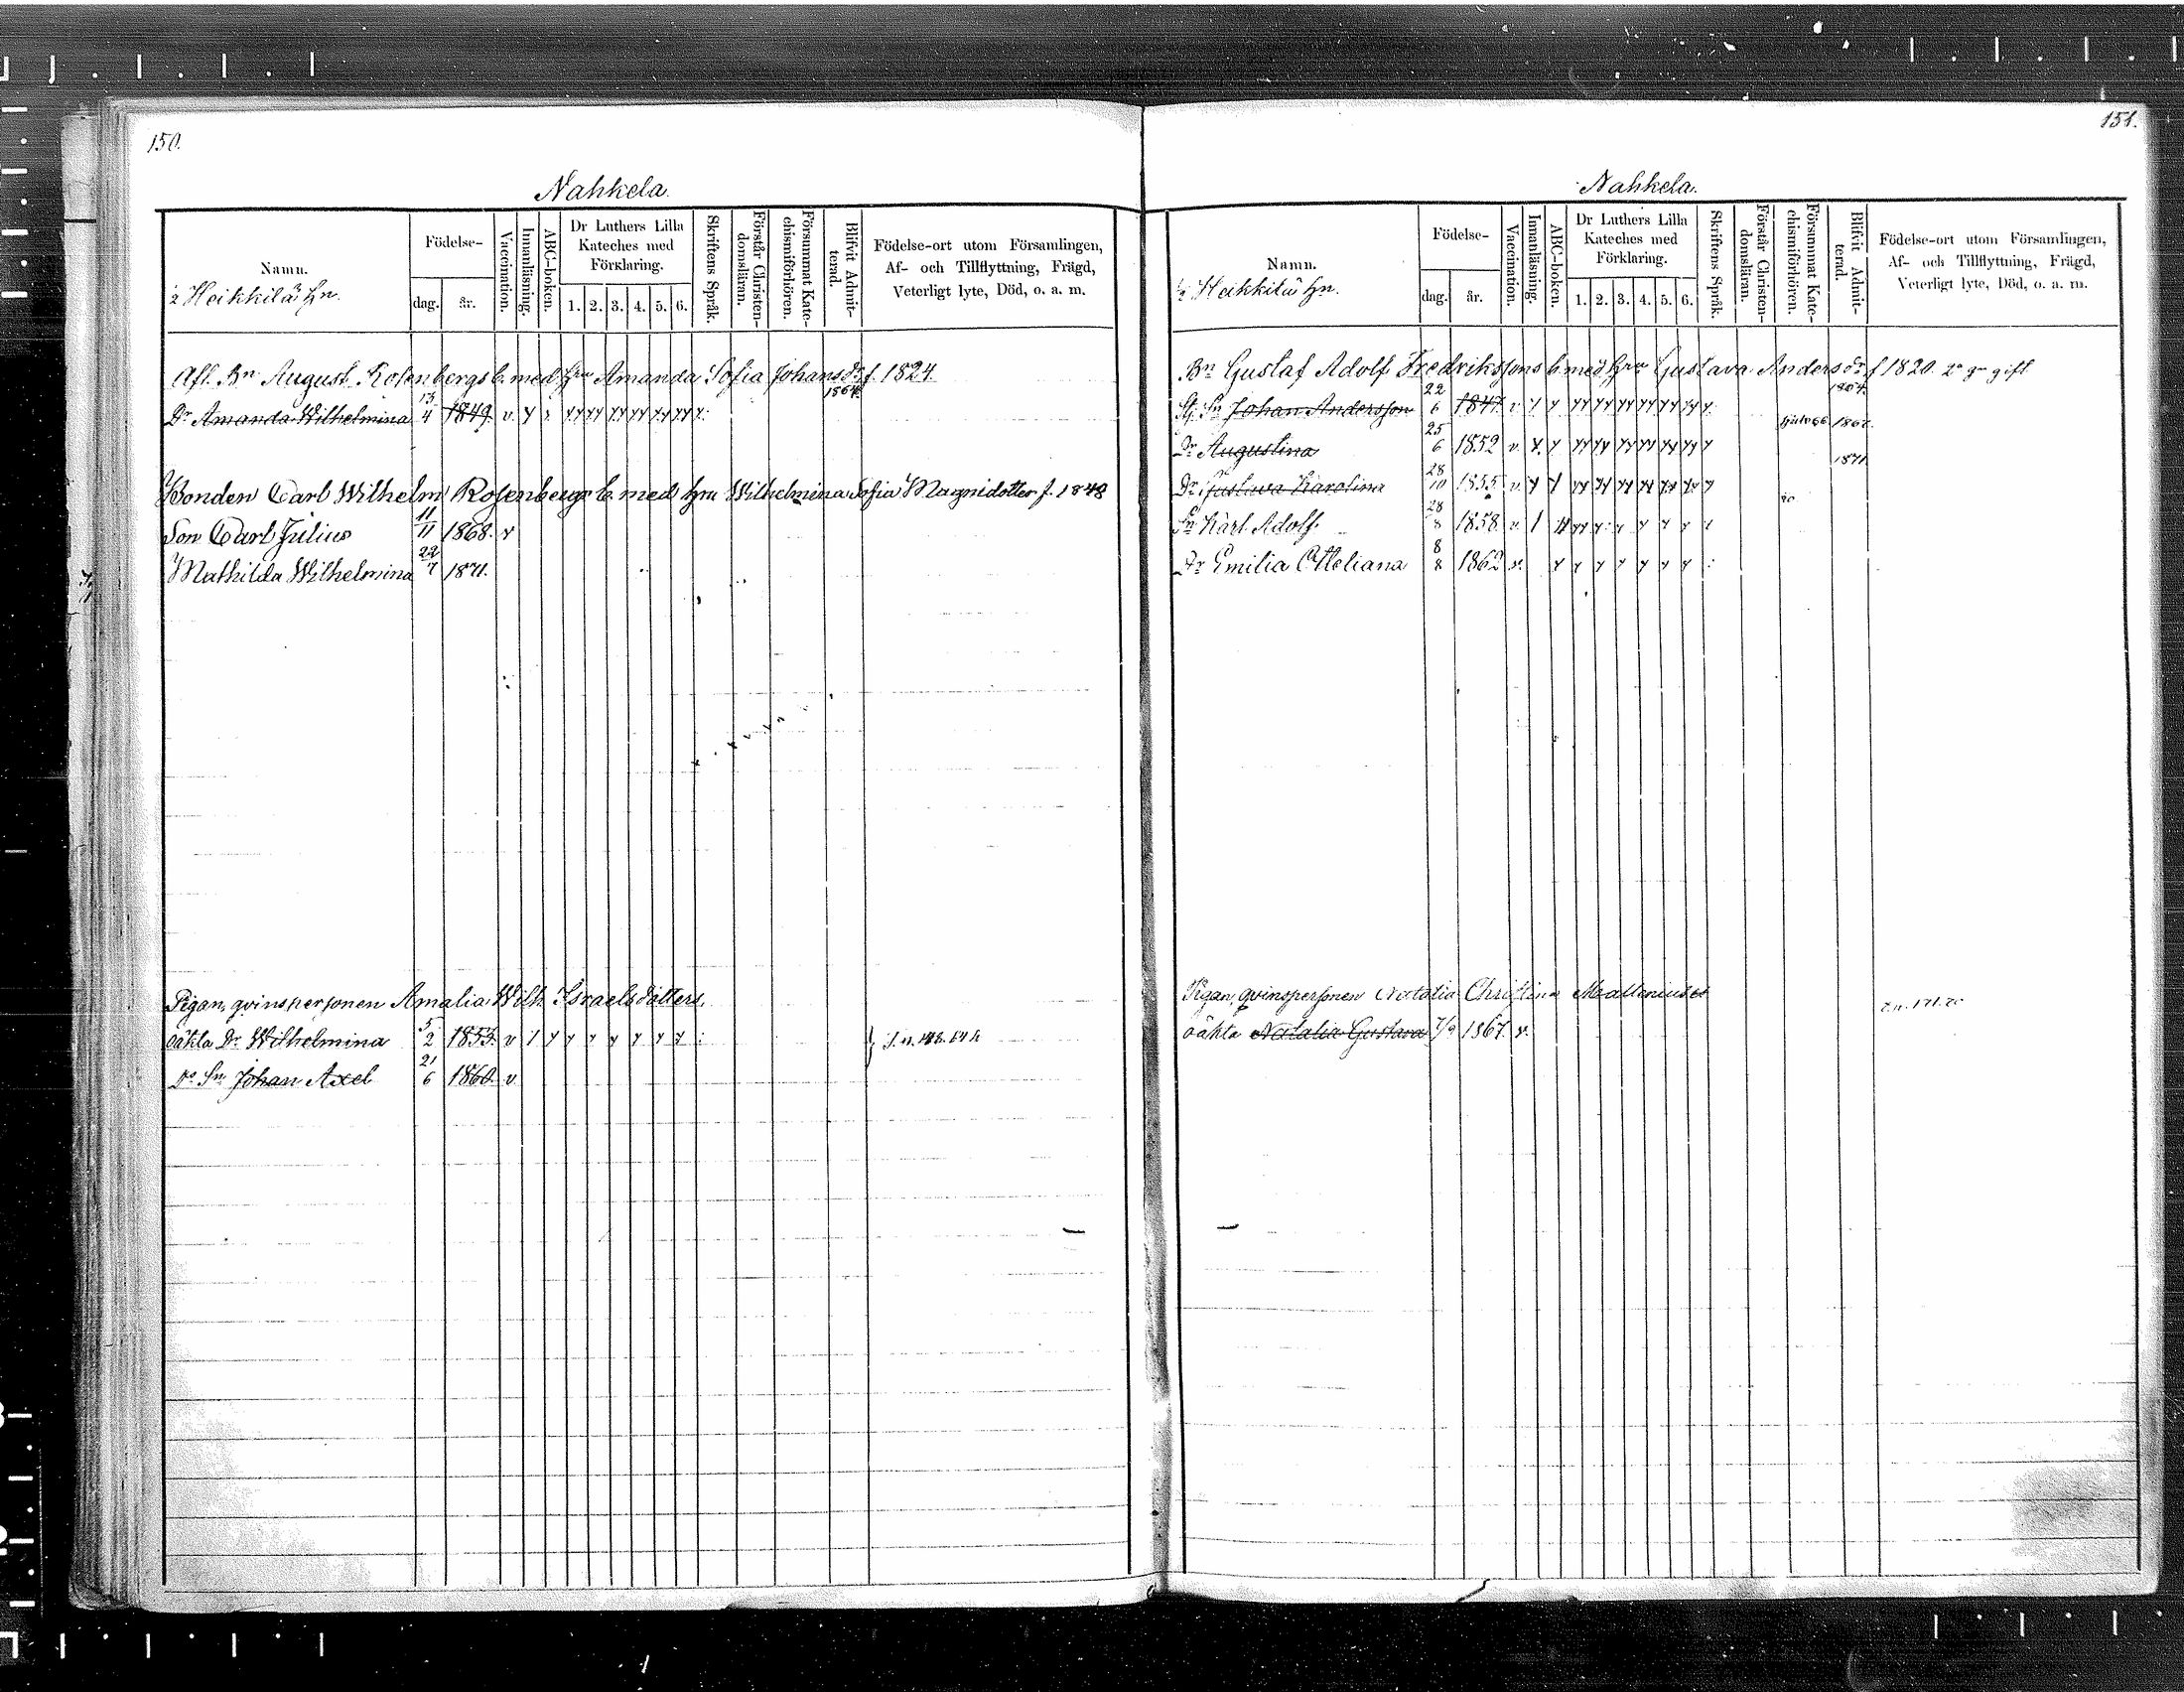 150.
Nahkela.
Namn.
½ Heikkilä Hn.
Födelse-
dag. år.
Vaccination.
Innanläsning.
ABC-boken.
Dr Luthers Lilla Kateches med Förklaring.
1. 2. 3. 4. 5. 6.
Skriftens Språk.
Förstår Christendomsläran.
Försummat Katechismiförhören.
Blifvit Admitterad.
Födelse-ort utom Församlingen, Af- och Tillflyttning, Frägd, Veterligt lyte, Död, o. a. m.
Afl. Bn August Rosenbergs b. med Hru Amanda Sofia Johansdr f. 1824.
Dr Amanda Wilhelmina 13/4 1849. v. 1864.
Bonden Carl Wilhelm Rosenbergs b. med Hru Wilhelmina Sofia Magnidotter f. 1848
Son Carl Julius 11/11 1868. v
Mathilda Wilhelmina 22/7 1871.
Pigan, qvinspersonen Amalia Wilh. Israelsdotters
oäkta Dr Wilhelmina 5/2 1853. v
Do Sn Johan Axel 21/6 1860. v
151.
Nahkela.
Namn.
½ Heikkilä Hn.
Födelse-
dag. år.
Vaccination.
Innanläsning.
ABC-boken.
Dr Luthers Lilla Kateches med Förklaring.
1. 2. 3. 4. 5. 6.
Skriftens Språk.
Förstår Christendomsläran.
Försummat Katechismiförhören.
Blifvit Admitterad.
Födelse-ort utom Församlingen, Af- och Tillflyttning, Frägd, Veterligt lyte, Död, o. a. m.
Bn Gustaf Adolf Fredrikssons b. med Hru Gustava Andersdr f 1820. 2a gn gift
Sn Johan Andersson 22/6 1847. v.
Dr Augustina 25/6 1852 v. 1867.
Dr Gustava Karolina 28/10 1855 v. 1871
Sn Karl Adolf 28/8 1858. v.
Dr Emilia Otteliana 8/8 1862 v.
Pigan, qvinspersonen Natalia Christina
oäkta Natalia Gustava 7/9 1867. v.